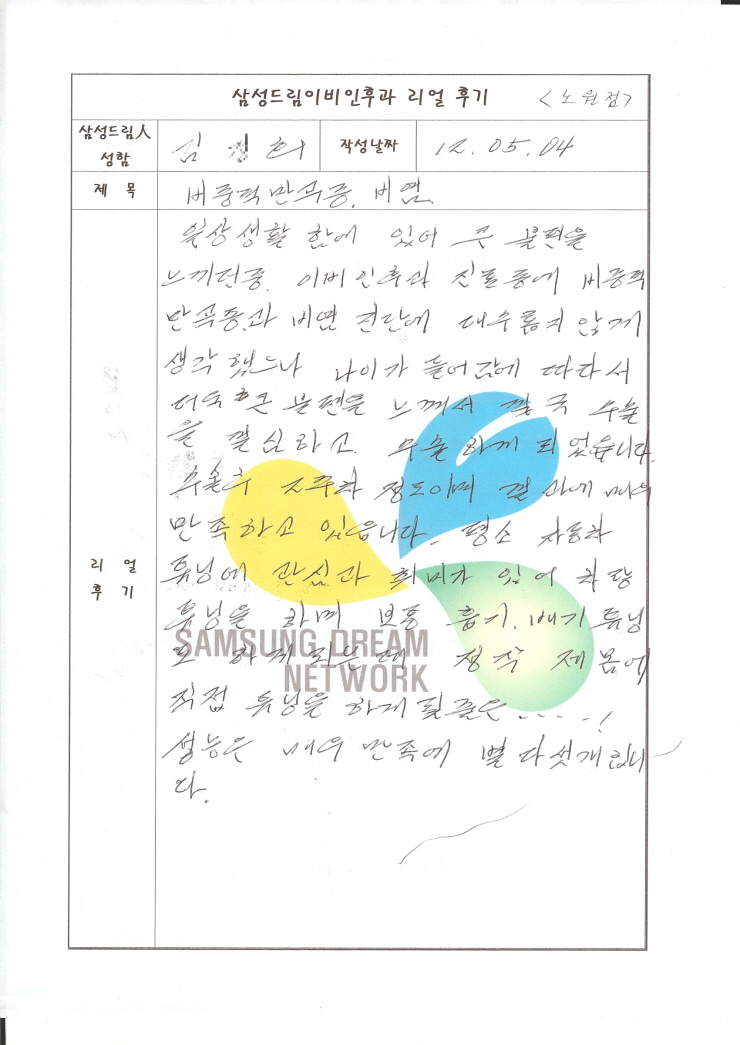 삼성드림이비인후과 리얼 후기 <노원점>
삼성드림人 성함 김 희 작성날짜 12. 05. 04
제 목 비중격만곡증, 비염.
일상생활 함에 있어 큰 불편을
느끼던중, 이비인후과 진료중에 비중격
만곡증과 비염 진단에 대수롭지 않게
생각 했으나 나이가 들어감에 따라서
더욱 큰 불편을 느껴서 결국 수술
을 결심하고 수술하게 되었습니다.
수술후 2주차 정도이며 결과에 매우
만족하고 있습니다. 평소 자동차
리 얼 후 기
튜닝에 관심과 취미가 있어 차량
튜닝을 하며 보통 흡기, 배기 튜닝
도 하게되는데 정작 제 몸에
SAMSUNG DREAM
NETWORK
직접 튜닝을 하게 될줄은.....!
성능은 매우 만족에 별 다섯개입니
다.